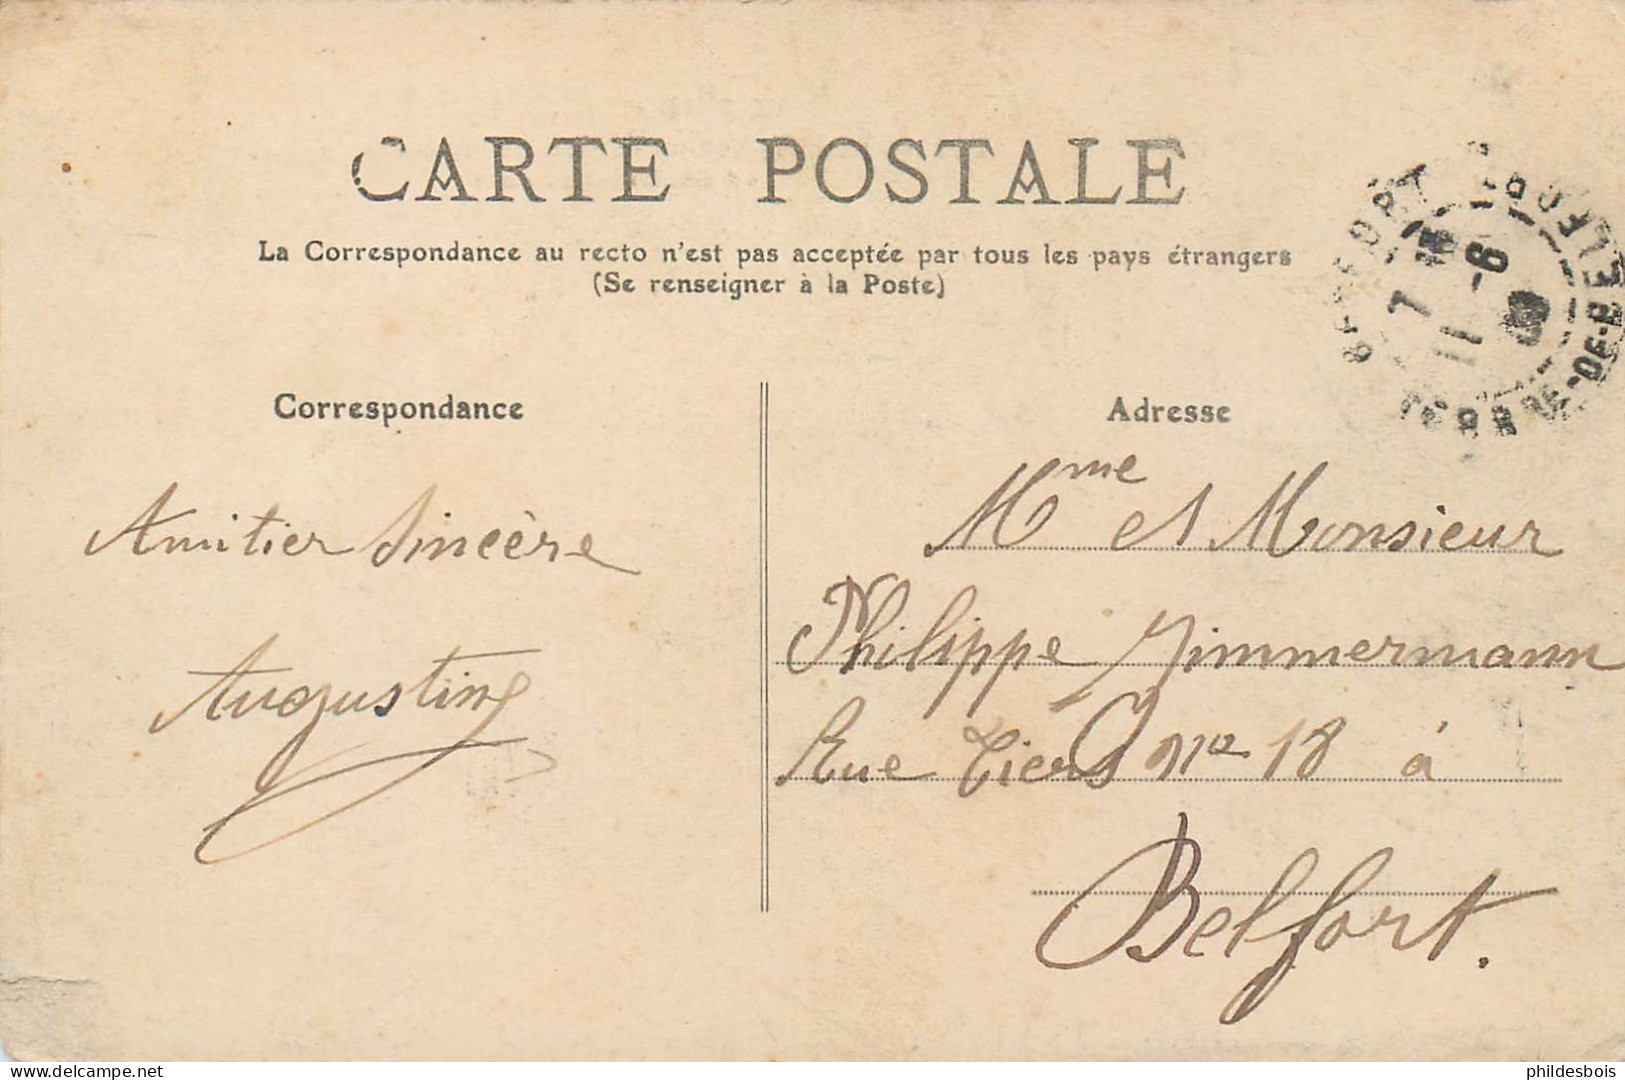 CARTE POSTALE
La Correspondance au recto n'est pas acceptée par tous les pays étrangers
(Se renseigner à la Poste)
Correspondance
Amitier Sincère
Augustine
Adresse
Mme et Monsieur
Philippe Zimmermann
Rue Tiers No 18 à
Belfort.
BELFORT
11 -6
delcampe.net
phildesbois